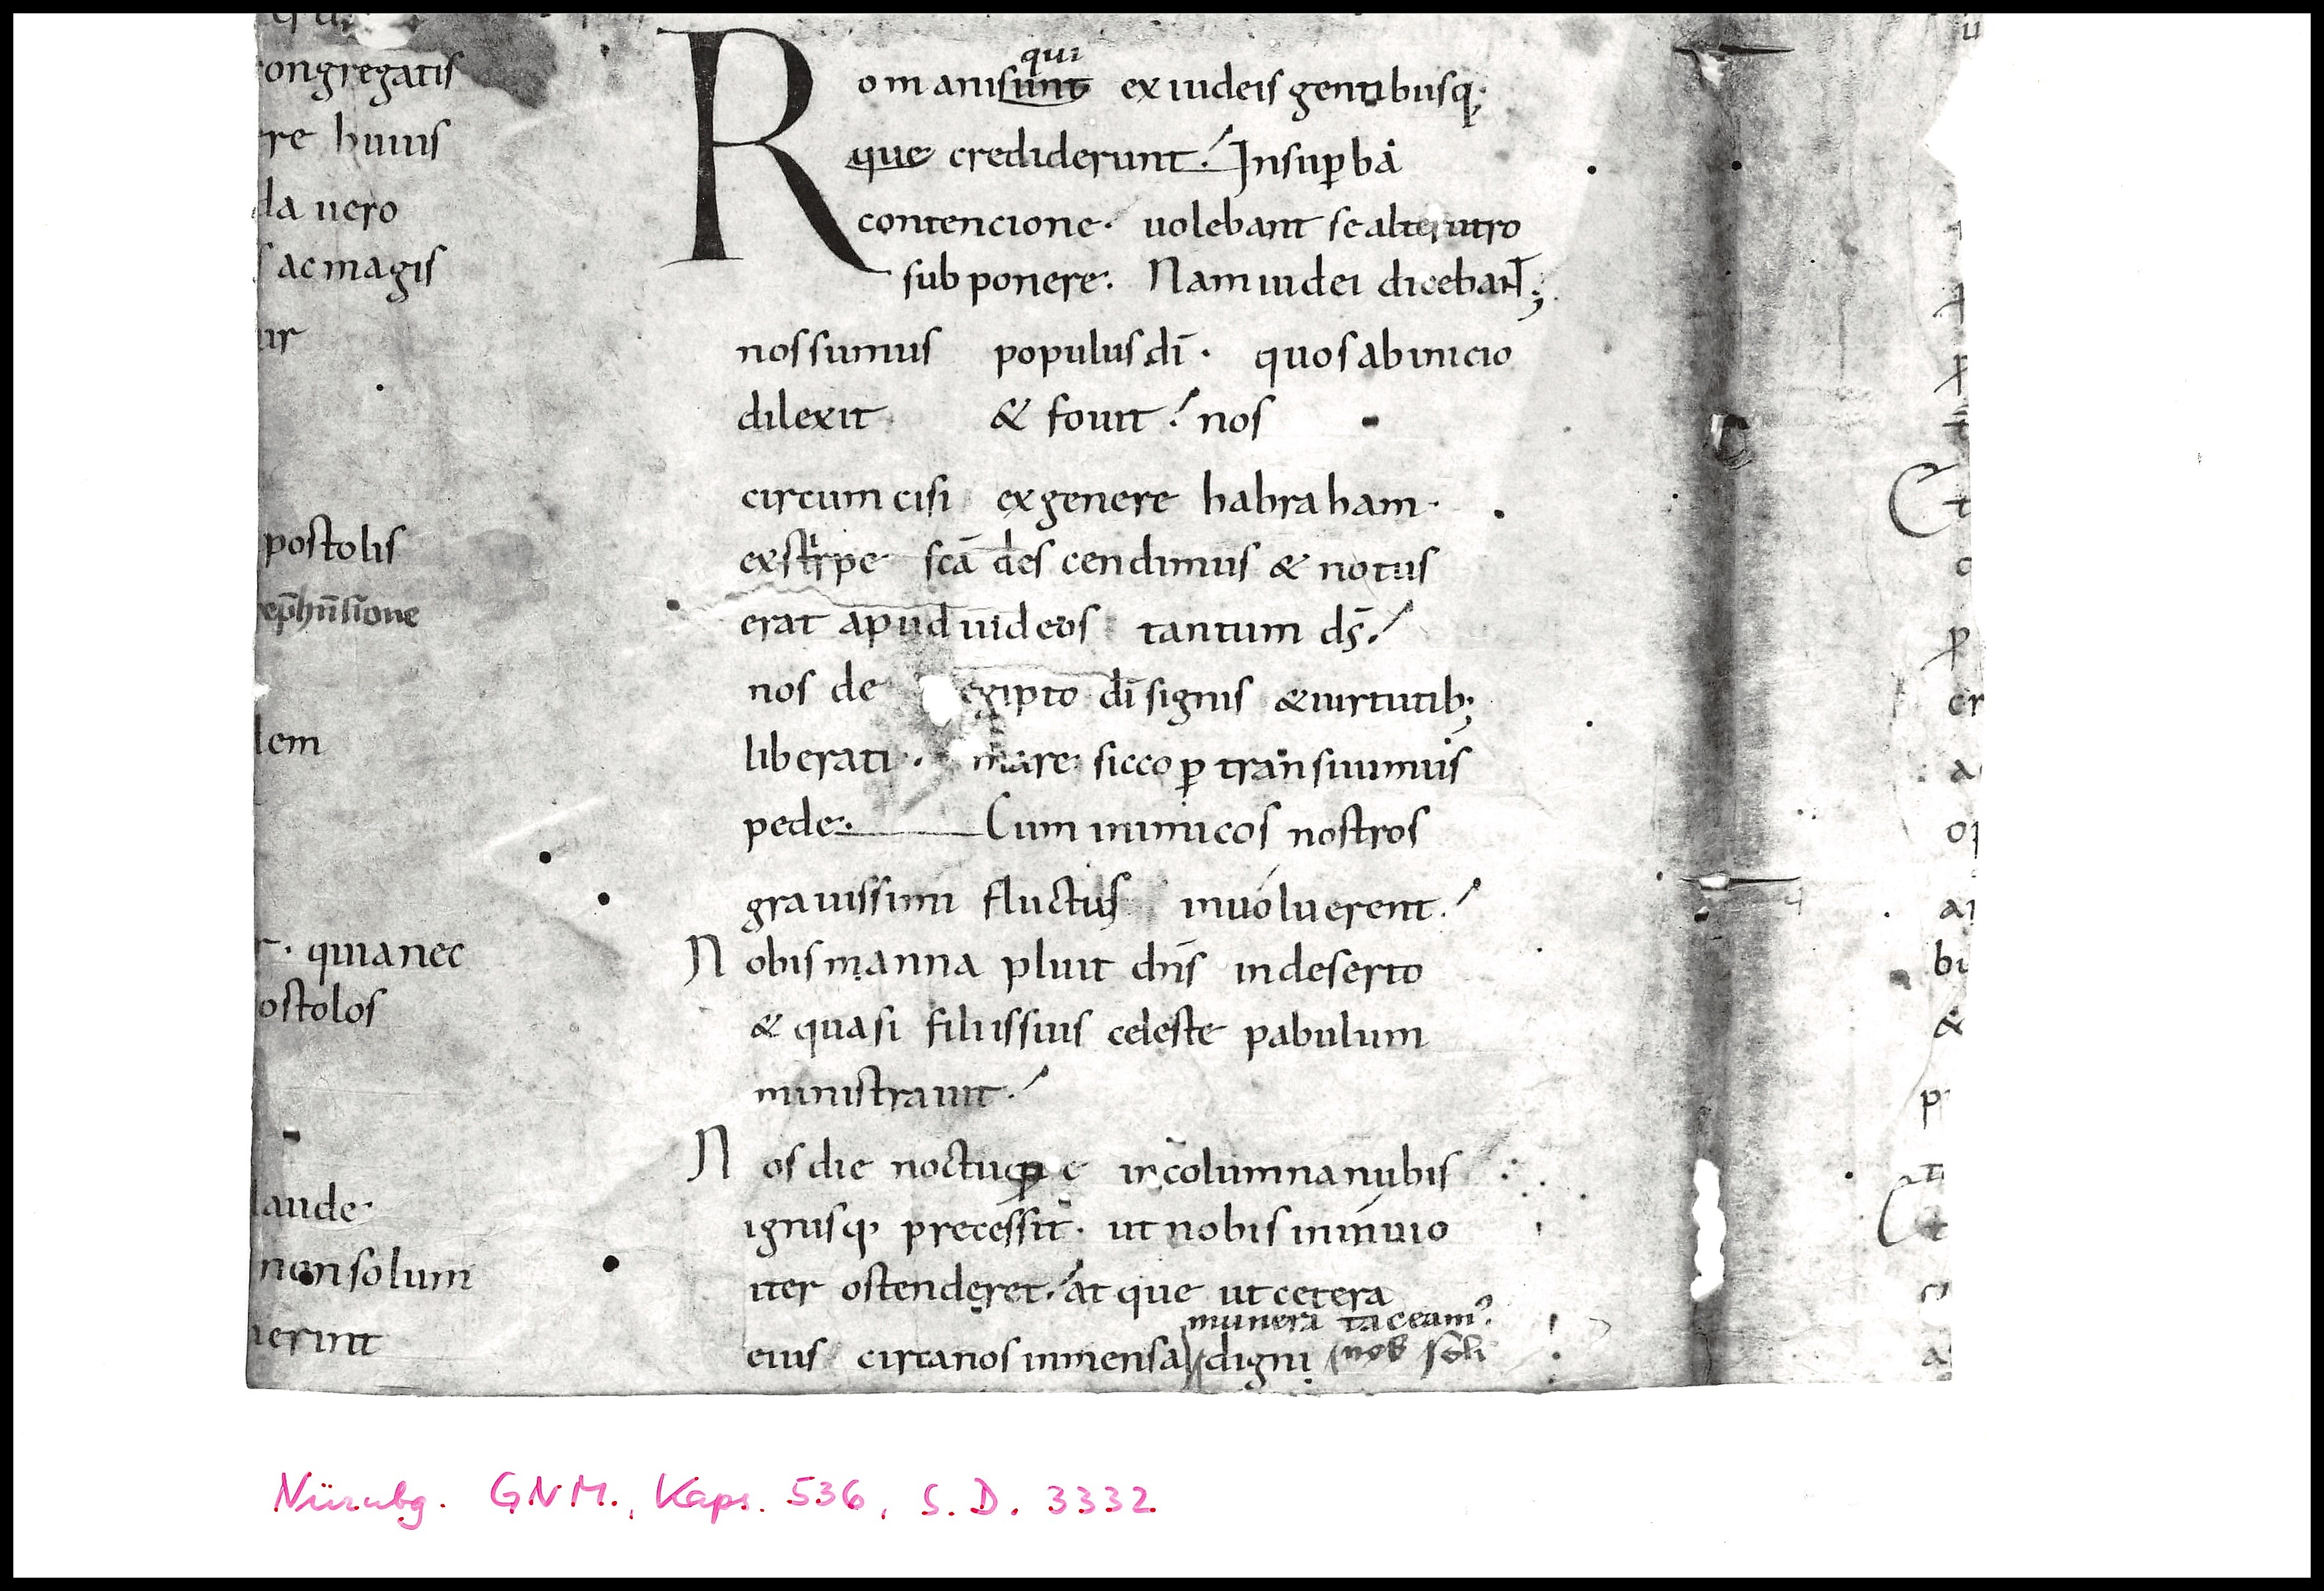 ongregatis
re huius
da uero
ac magis
ur
postolis
lem
quia nec
ostolos
laude
non solum
erint
qui
Romani sunt ex iudeis gentibusq;
que crediderunt. Insuꝑba
contencione. uolebant se alterutro
sub ponere. Nam iudei dicebant;
nos sumus populus dī. quos ab inicio
dilexit & fouit. nos
circumcisi ex genere habraham.
ex stirpe scā descendimus & notus
erat apud iudeos tantum ds̄.
nos de egipto dī signis & uirtutib;
liberati. mare sicco ꝑ transiuimus
pede. Cum inimicos nostros
grauissimi fluctus inuoluerent.
Nobis manna pluit dn̄s in deserto
& quasi filiis suis celeste pabulum
ministrauit.
Nos die noctuq; in columna nubis
ignisq; precessit. ut nobis in inuio
iter ostenderet. at que ut cetera
munera taceam.
eius circa nos inmensa digni
Et
er
bi
&
Nürnbg. GNM., Kaps. 536, S.D. 3332